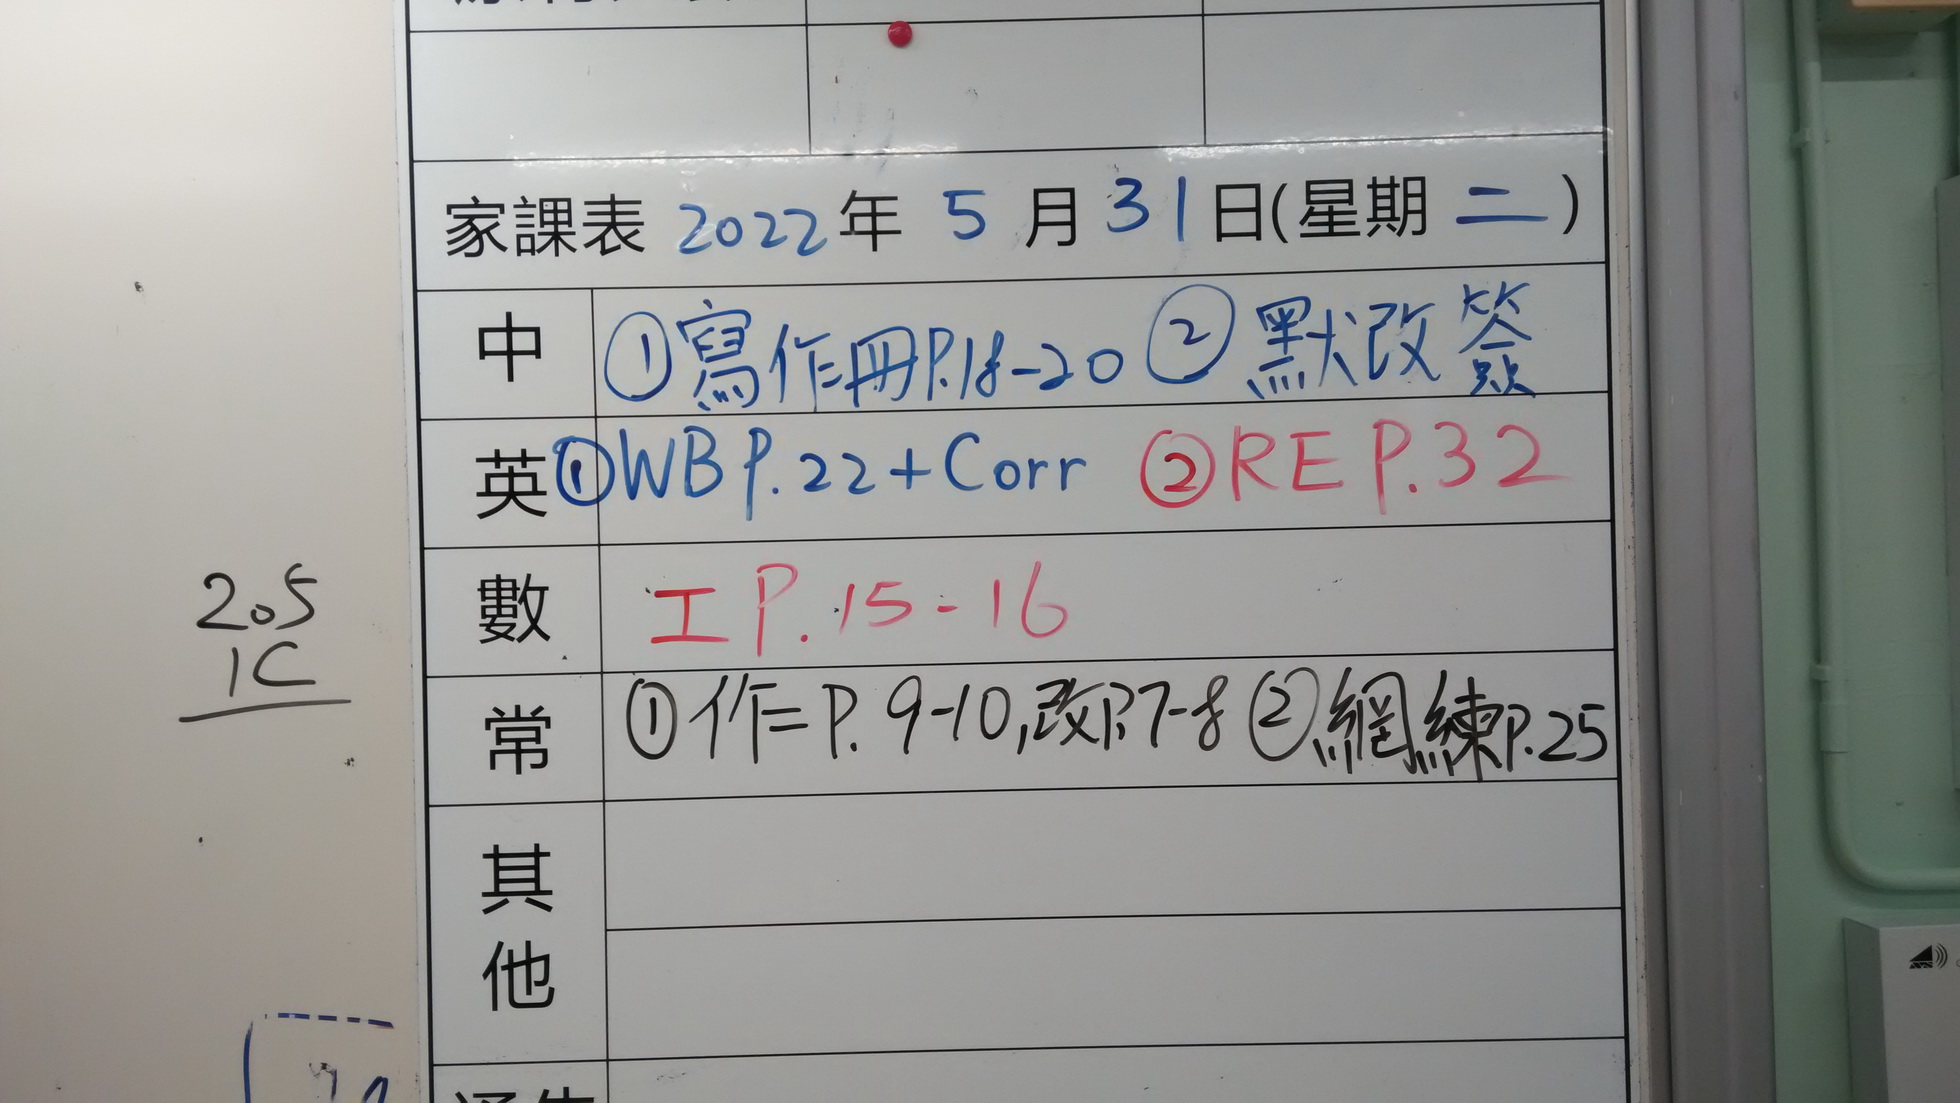 家課表 2022年 5月 31日(星期二)
中 ①寫作冊P.18-20 ②默改簽
英 ①WB P.22+Corr ②RE P.32
數 工 P.15-16
205
1C
常 ①作=P.9-10,改P.7-8 ②網練P.25
其他